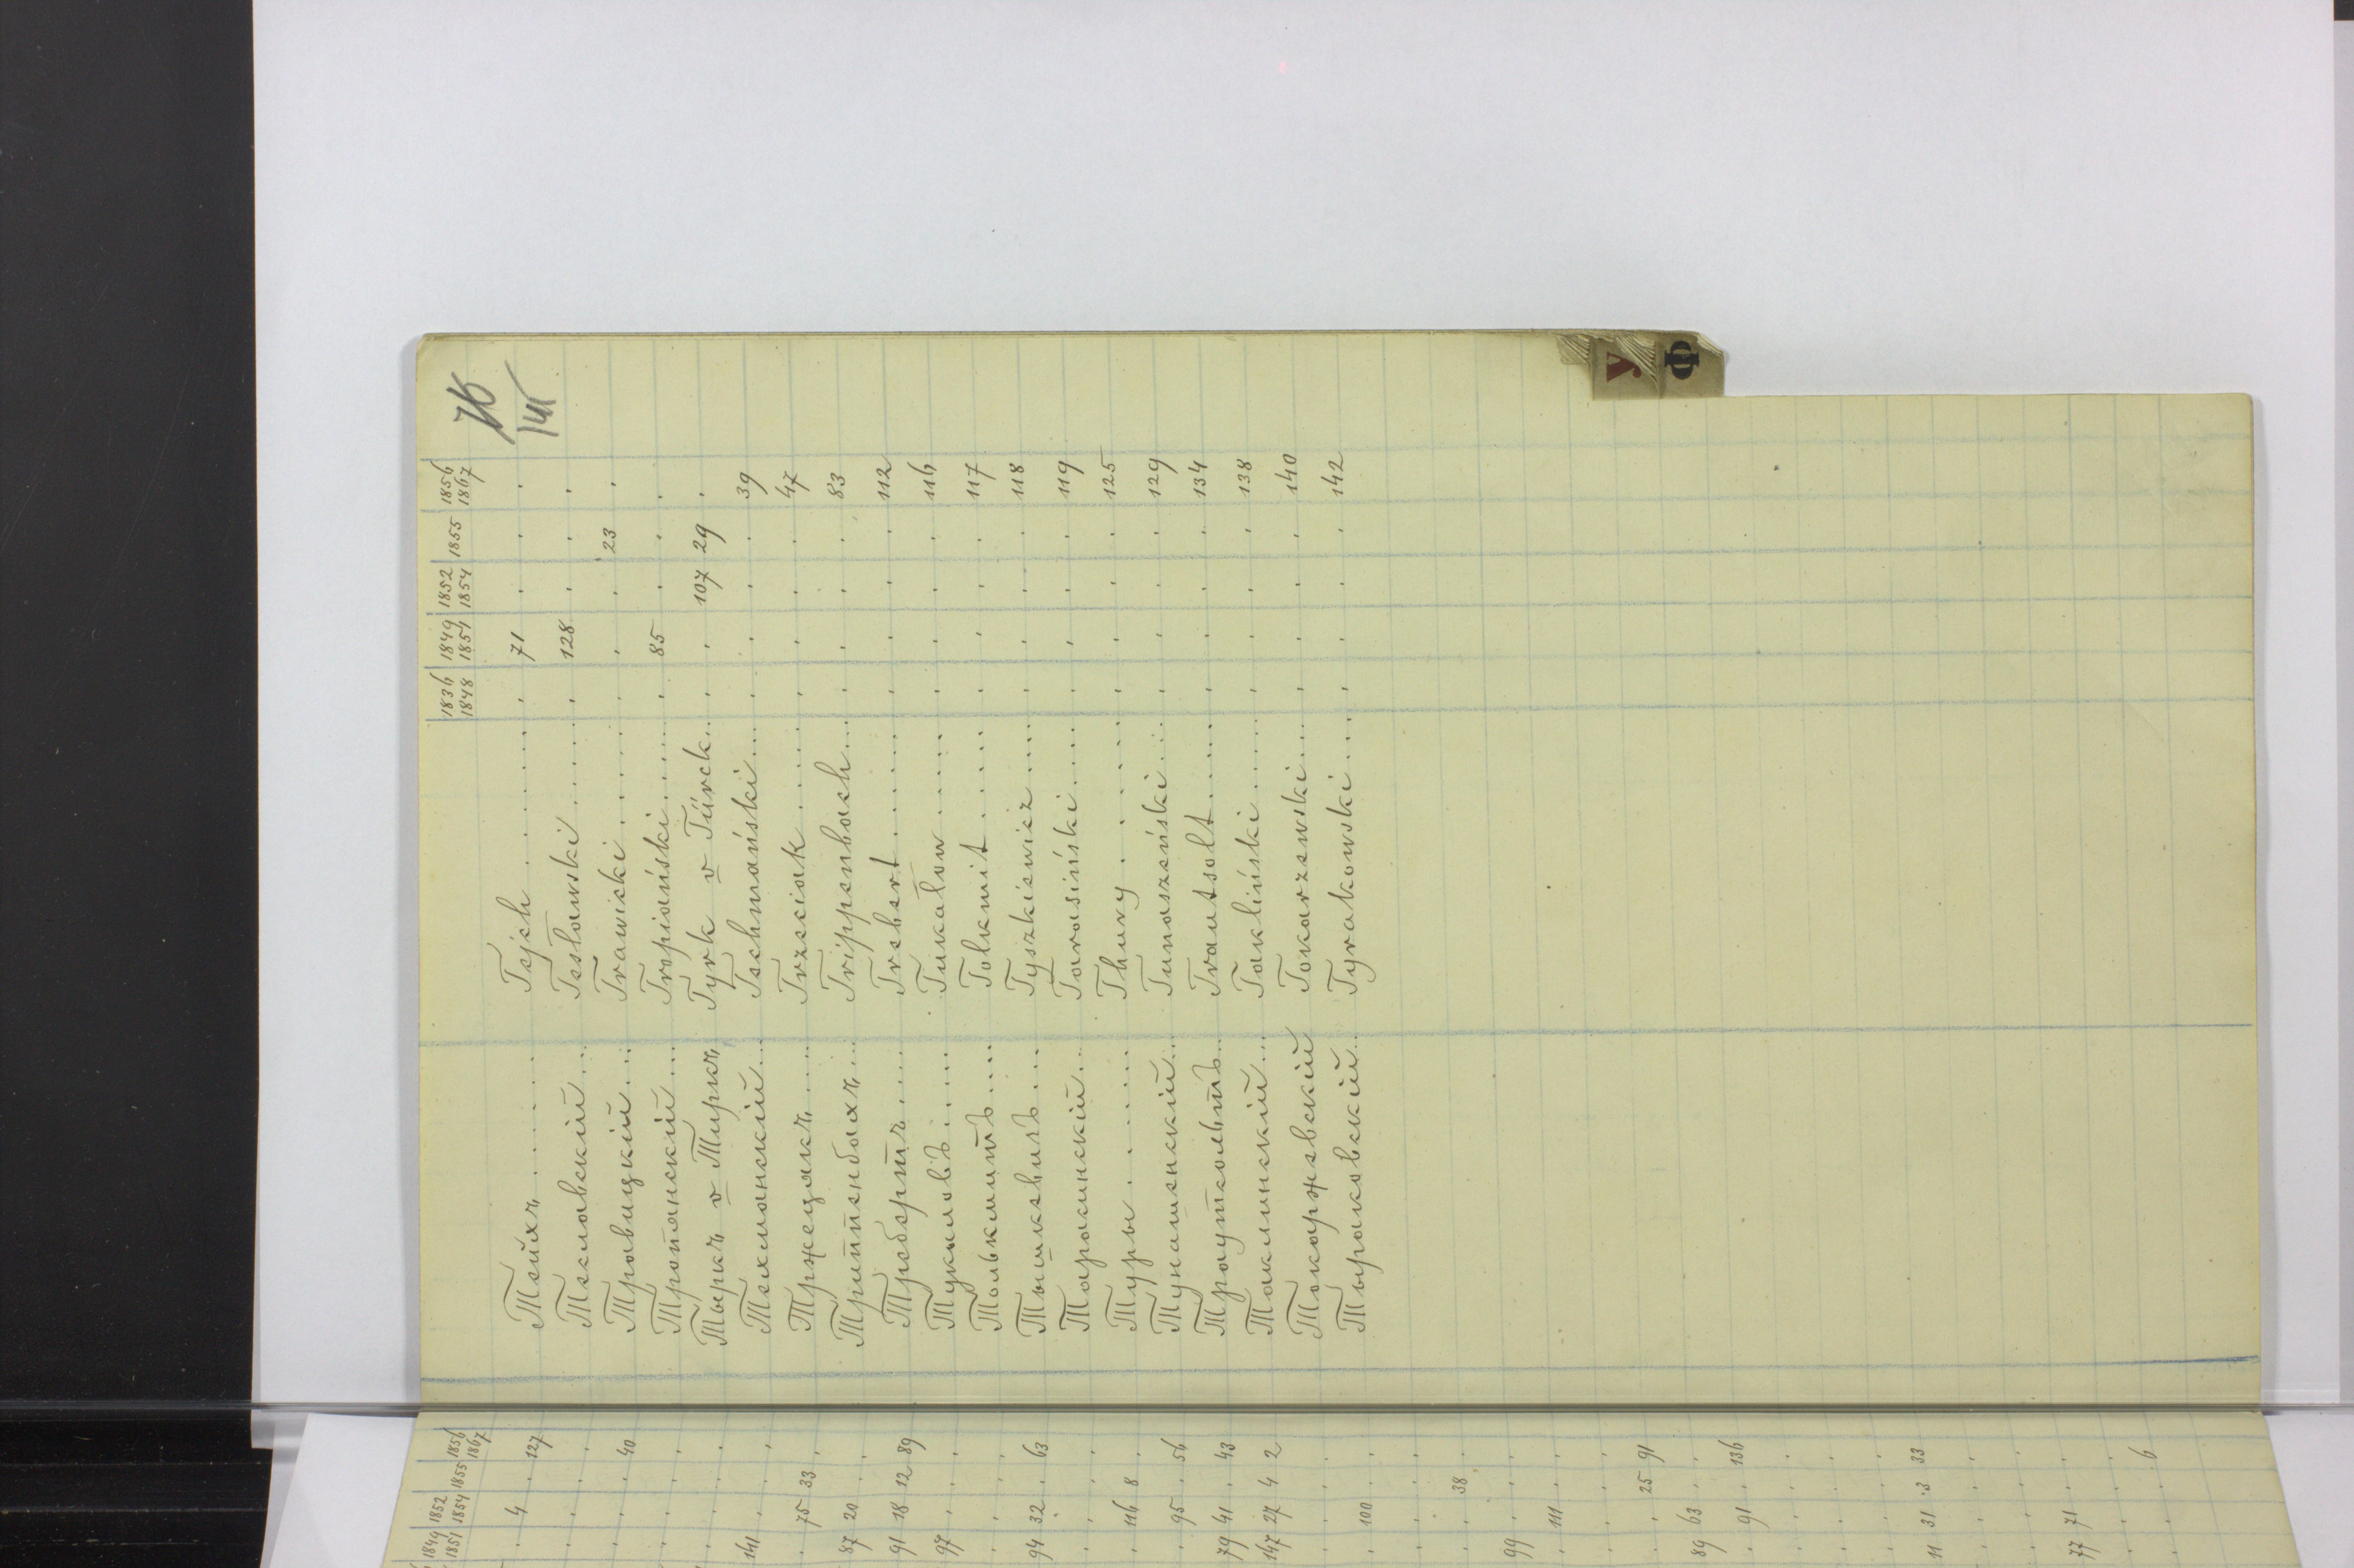 76
141
1836 1848 | 1849 1851 | 1852 1854 | 1855 | 1856 1867
Тейхъ ....... Tejch ....... . 71 . . .
Тесловскій ... Tesławski ...... . 128 . . .
Травицкій ... Trawicki ...... . . . 23 .
Тропянскій ... Tropiański ..... . 85 . . .
Тыркъ v Тиркъ Tyrk v Türck ... . . 107 29 .
Техманскій ... Techmański .... . . . . 39
Тржецякъ ..... Trzeciak ...... . . . . 47
Триппенбахъ ... Trippenbach ... . . . . 83
Требертъ ..... Trebert ....... . . . . 112
Тукаловъ ..... Tukałow ....... . . . . 116
Толькмитъ .... Tolkmit ....... . . . . 117
Тышкевичъ .... Tyszkiewicz .... . . . . 118
Тарасинскій ... Tarasiński ..... . . . . 119
Туры ....... Thury ....... . . . . 125
Тунашенскій ... Tunaszeński .... . . . . 129
Траутсольтъ ... Trautsolt ...... . . . . 134
Таклинскій ... Takliński ...... . . . . 138
Токаржевскій Tokarzewski .... . . . . 140
Тыраковскій .. Tyrakowski .... . . . . 142
У
Ф
1849 1851 | 1852 1854 | 1855 | 1856 1867
4 . 127
40
141
75 33
87 20
91 18 12 89
97
94 32 . 63
116 8
95 . 56
79 41 . 43
147 27 4 2
100
38
99
111
25 91
89 63
91 . 136
11 31 3 33
77 71
6